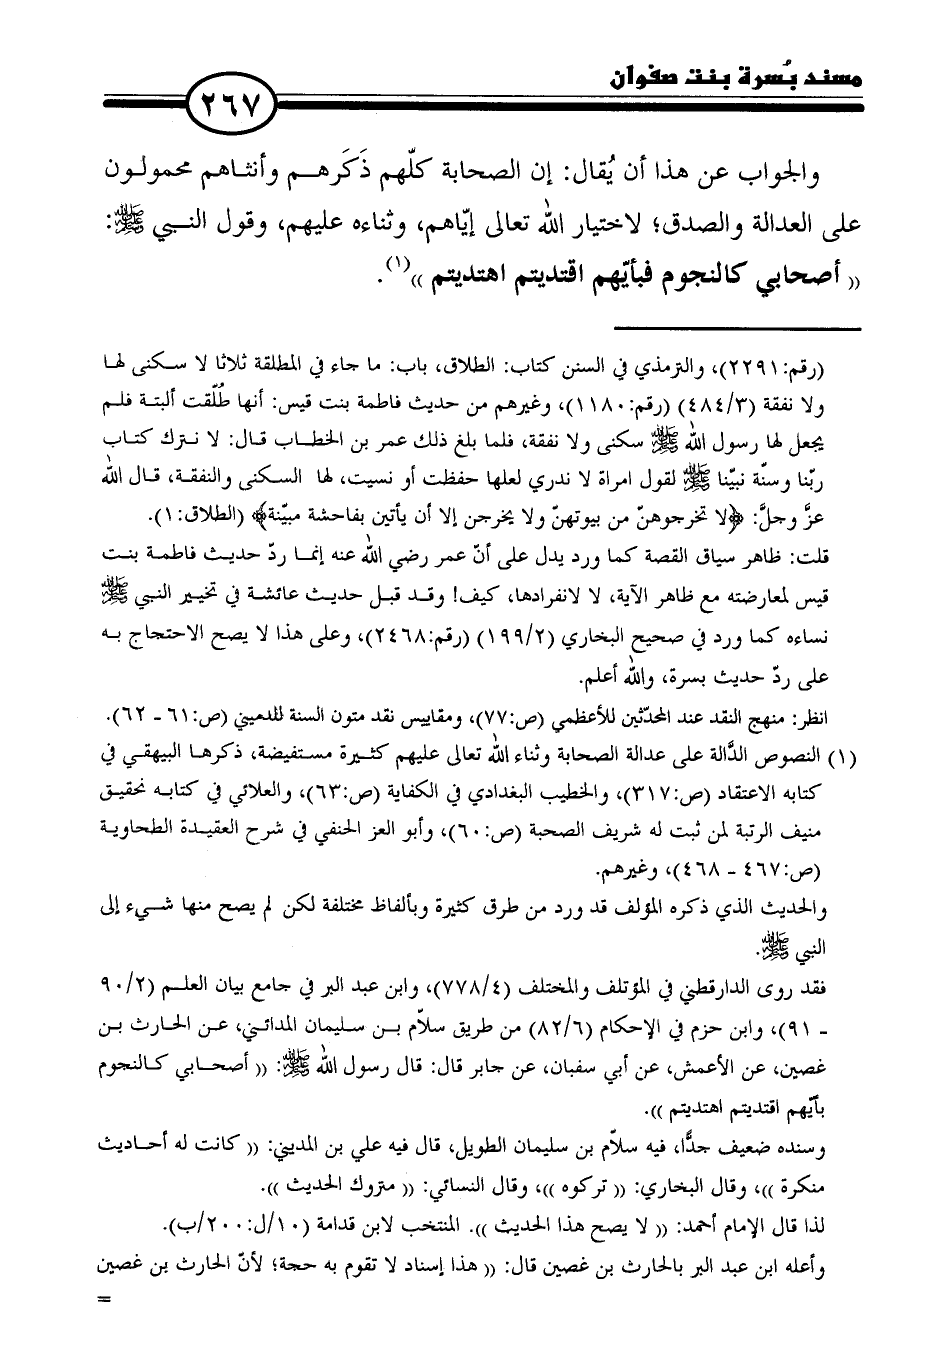 مسند بُسرة بنت صفوان
٢٦٧
والجواب عن هذا أن يُقال: إن الصحابة كلّهم ذَكَرهـم وأنثـاهم محمولـون
على العدالة والصدق؛ لاختيار الله تعالى إيّاهم، وثناءه عليهم، وقول النـبي ﷺ:
(( أصحابي كالنجوم فبأيّهم اقتديتم اهتديتم ))(١).
(رقم:٢٢٩١)، والترمذي في السنن كتاب: الطلاق، باب: ما جاء في المطلقة ثلاثا لا سـكنى لهـا
ولا نفقة (٤٨٤/٣) (رقم:١١٨٠)، وغيرهم من حديث فاطمة بنت قيس: أنها طُلّقت ألبتة فلم
يجعل لها رسول الله ﷺ سكنى ولا نفقة، فلما بلغ ذلك عمر بن الخطاب قـال: لا نـترك كتـاب
ربّنا وسنّة نبيّنا ﷺ لقول امراة لا ندري لعلها حفظت أو نسيت، لها السكنى والنفقـة، قـال الله
عزَّ وجلَّ: ﴿لا تخرجوهنّ من بيوتهنّ ولا يخرجن إلا أن يأتين بفاحشة مبيّنة﴾ (الطلاق:١).
قلت: ظاهر سياق القصة كما ورد يدل على أنّ عمر رضي الله عنه إنمـا ردّ حديث فاطمـة بنـت
قيس لمعارضته مع ظاهر الآية، لا لانفرادها، كيف! وقـد قبل حديث عائشـة في تخيير النبي ﷺ
نساءه كما ورد في صحيح البخاري (١٩٩/٢) (رقم:٢٤٦٨)، وعلى هذا لا يصح الاحتجاج بـه
على ردّ حديث بسرة، والله أعلم.
انظر: منهج النقد عند المحدّثين للأعظمي (ص:٧٧)، ومقاييس نقد متون السنة للدميني (ص:٦١ـ ٦٢).
(١) النصوص الدَّالة على عدالة الصحابة وثناء الله تعالى عليهم كثـيرة مسـتفيضة، ذكرهـا البيهقـي في
كتابه الاعتقاد (ص:٣١٧)، والخطيب البغدادي في الكفاية (ص:٦٣)، والعلائي في كتابـه تحقيـق
منيف الرتبة لمن ثبت له شريف الصحبة (ص:٦٠)، وأبو العز الحنفي في شرح العقيـدة الطحاويـة
(ص:٤٦٧ ـ ٤٦٨)، وغيرهم.
والحديث الذي ذكره المؤلف قد ورد من طرق كثيرة وبألفاظ مختلفة لكن لم يصح منها شـيء إلى
النبي ﷺ.
فقد روى الدارقطني في المؤتلف والمختلف (٧٧٨/٤)، وابن عبد البر في جامع بيان العلـم (٩٠/٢
ـ ٩١)، وابن حزم في الإحكام (٨٢/٦) من طريق سلاّم بـن سليمان المدائـني، عـن الحارث بـن
غصين، عن الأعمش، عن أبي سفيان، عن جابر قال: قال رسول الله ﷺ: (( أصحـابي كـالنجوم
بأيّهم اقتديتم اهتديتم )).
وسنده ضعيف جدًّا، فيه سلاّم بن سليمان الطويل، قال فيه علي بن المديني: (( كانت له أحـاديث
منكرة ))، وقال البخاري: (( تركوه ))، وقال النسائي: (( متروك الحديث )).
لذا قال الإمام أحمد: (( لا يصح هذا الحديث )). المنتخب لابن قدامة (١٠/ل:٢٠٠/ب).
وأعله ابن عبد البر بالحارث بن غصين قال: (( هذا إسناد لا تقوم به حجة؛ لأنّ الحارث بن غصين
=